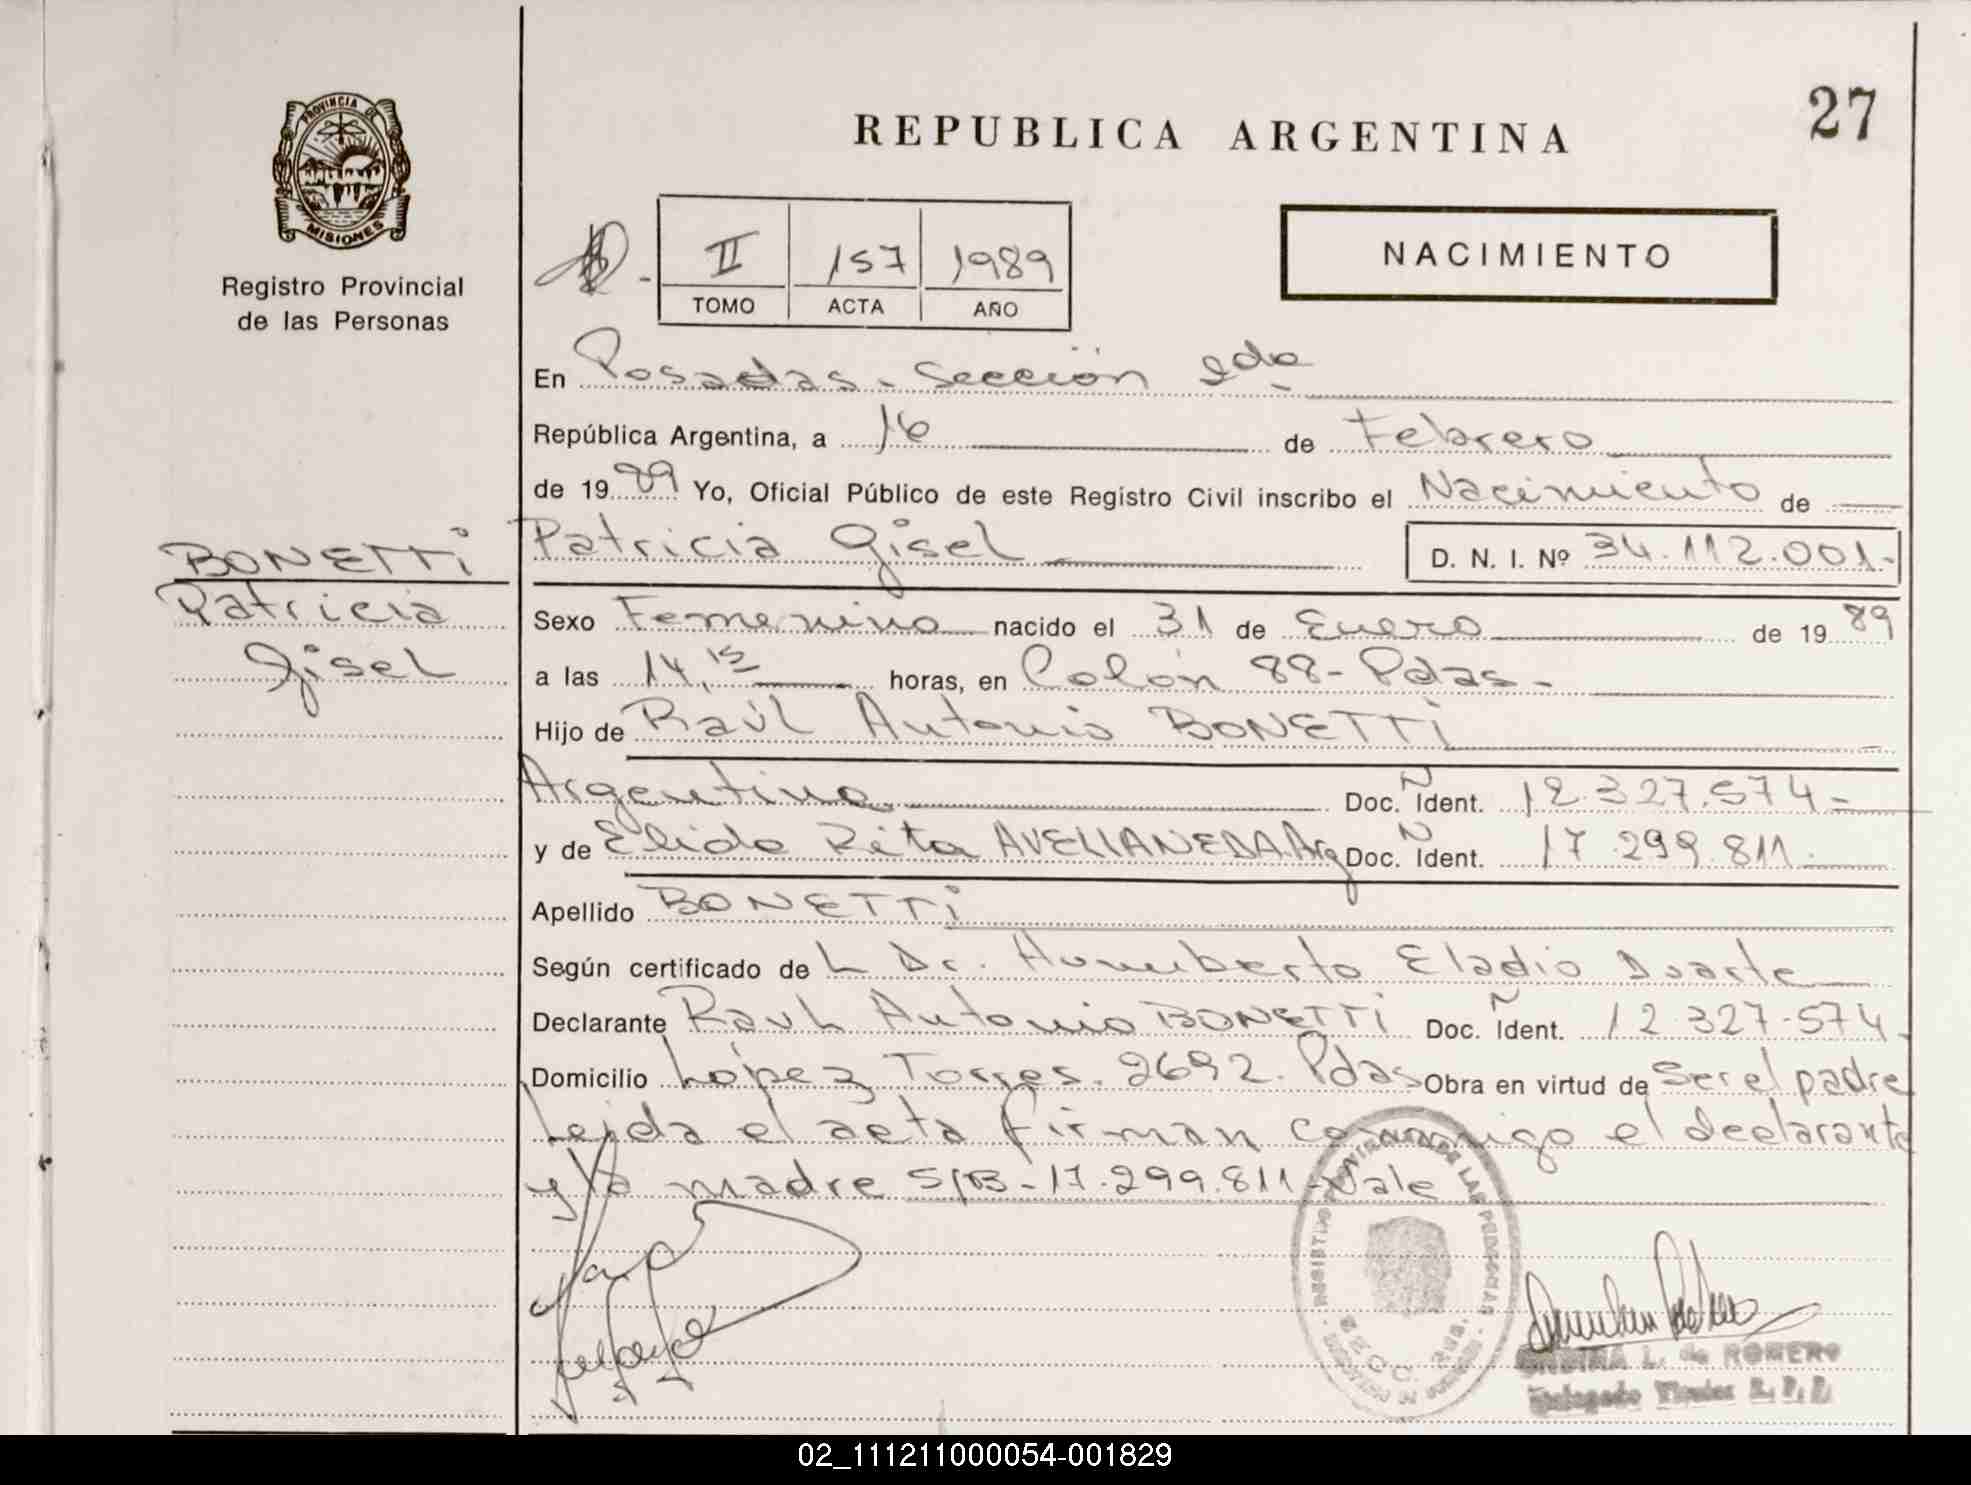 PROVINCIA DE
MISIONES
Registro Provincial
de las Personas
REPUBLICA ARGENTINA
27
II 157 1989
TOMO ACTA AÑO
NACIMIENTO
En Posadas - Sección 2da
República Argentina, a 16 de Febrero
de 1989 Yo, Oficial Público de este Registro Civil inscribo el Nacimiento de
BONETTI
Patricia
Gisel
Patricia Gisel D. N. I. Nº 34.112.001.-
Sexo Femenino nacido el 31 de Enero de 1989
a las 14,15 horas, en Colón 88 - Pdas -
Hijo de Raúl Antonio BONETTI
Argentino Doc. Ñ Ident. 12.327.574 -
y de Elida Rita AVELLANEDA Arg Doc. Ñ Ident. 17.299.811.
Apellido BONETTI
Según certificado de L Dr. Humberto Eladio Duarte
Declarante Raúl Antonio BONETTI Doc. Ñ Ident. 12.327-574-
Domicilio López Torres. 2692. Pdas Obra en virtud de ser el padre
Leida el acta firman conmigo el declarante
y la madre S/B - 17.299.811 - Vale
L. de ROMERO
02_111211000054-001829